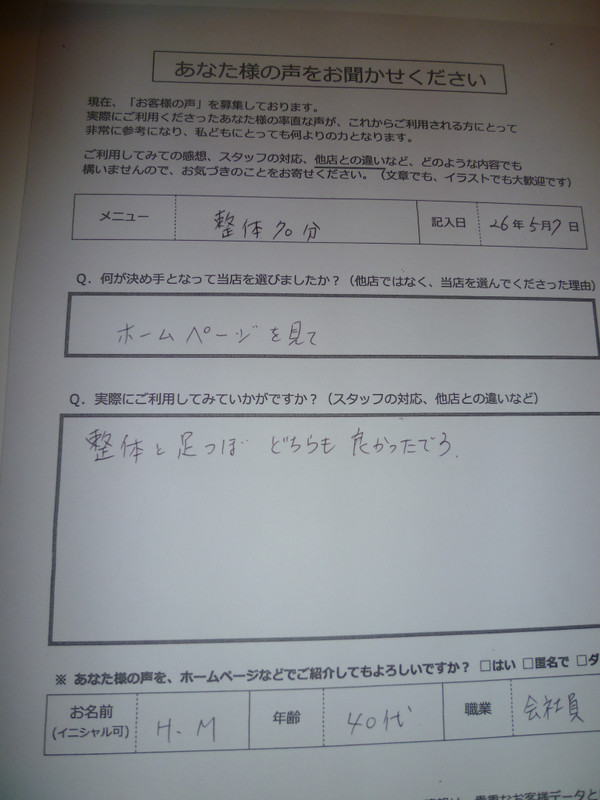 あなた様の声をお聞かせください
現在、「お客様の声」を募集しております。
実際にご利用くださったあなた様の率直な声が、これからご利用される方にとって
非常に参考になり、私どもにとっても何よりの力となります。
ご利用してみての感想、スタッフの対応、他店との違いなど、どのような内容でも
構いませんので、お気づきのことをお寄せください。（文章でも、イラストでも大歓迎です）
メニュー 整体70分 記入日 26年5月7日
Q．何が決め手となって当店を選びましたか？（他店ではなく、当店を選んでくださった理由）
ホームページを見て
Q．実際にご利用してみていかがですか？（スタッフの対応、他店との違いなど）
整体と足つぼ どちらも良かったです.
※ あなた様の声を、ホームページなどでご紹介してもよろしいですか？ □はい □匿名で □ダ
お名前 (イニシャル可) H.M 年齢 40代 職業 会社員
貴重なお客様データと